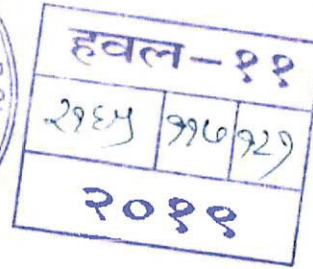 हवल-११
२१६५ ११७ १२१
२०११